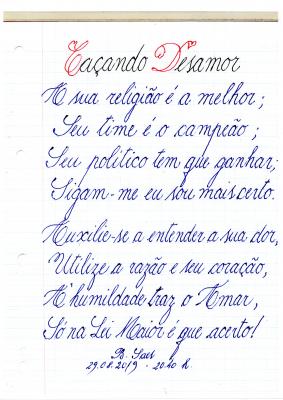 Caçando Desamor
A sua religião é a melhor;
Seu time é o campeão;
Seu político tem que ganhar;
Sigam-me eu sou mais certo.
Auxilie-se a entender a sua dor,
Utilize a razão e seu coração,
A humildade traz o Amar,
Só na Lei Maior é que acerto!
29.08.2019 - 20:10 h.